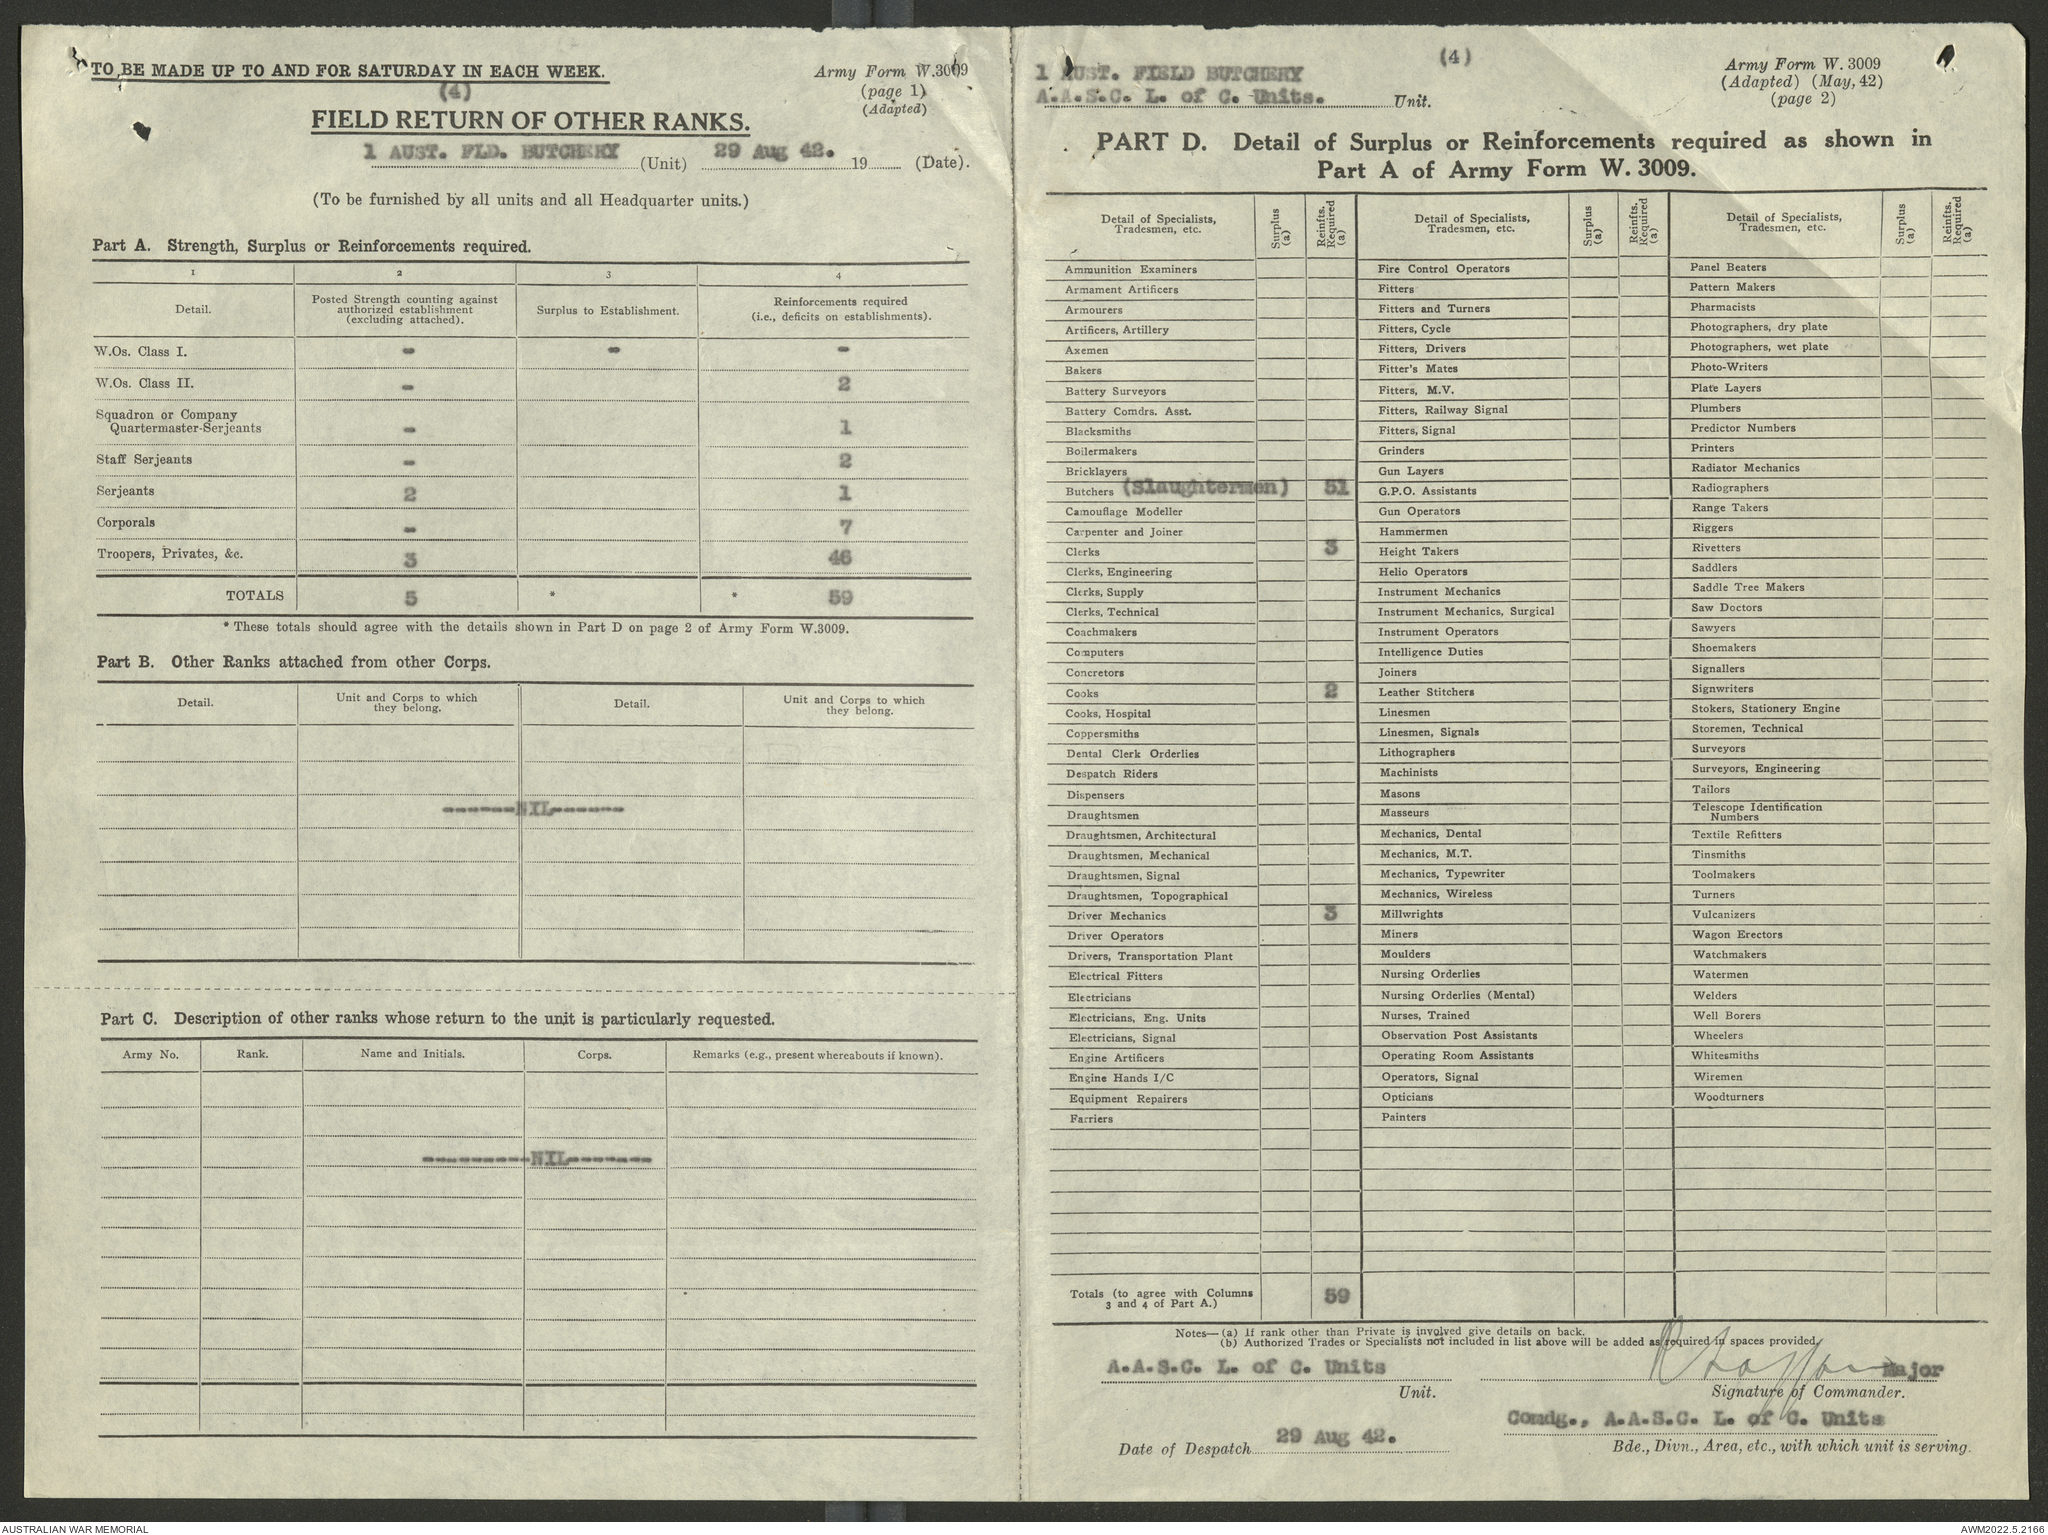 TO BE MADE UP TO AND FOR SATURDAY IN EACH WEEK.
Army Form W.3009
(page 1)
(Adapted)
(4)
FIELD RETURN OF OTHER RANKS.
1 AUST. FLD. BUTCHERY (Unit) 29 Aug 42. 19 (Date).
(To be furnished by all units and all Headquarter units.)
Part A. Strength, Surplus or Reinforcements required.
1 2 3 4
Detail. Posted Strength counting against authorized establishment (excluding attached). Surplus to Establishment. Reinforcements required (i.e., deficits on establishments).
W.Os. Class I. - - -
W.Os. Class II. - 2
Squadron or Company
Quartermaster-Serjeants - 1
Staff Serjeants - 2
Serjeants 2 1
Corporals - 7
Troopers, Privates, &c. 3 46
TOTALS 5 * * 59
* These totals should agree with the details shown in Part D on page 2 of Army Form W.3009.
Part B. Other Ranks attached from other Corps.
Detail. Unit and Corps to which they belong. Detail. Unit and Corps to which they belong.
------NIL------
Part C. Description of other ranks whose return to the unit is particularly requested.
Army No. Rank. Name and Initials. Corps. Remarks (e.g., present whereabouts if known).
---------NIL-------
(4)
1 AUST. FIELD BUTCHERY
A.A.S.C. L. of C. Units. Unit.
Army Form W. 3009
(Adapted) (May, 42)
(page 2)
PART D. Detail of Surplus or Reinforcements required as shown in
Part A of Army Form W. 3009.
Detail of Specialists, Tradesmen, etc. Surplus (a) Reinfts. Required (a)
Ammunition Examiners
Armament Artificers
Armourers
Artificers, Artillery
Axemen
Bakers
Battery Surveyors
Battery Comdrs. Asst.
Blacksmiths
Boilermakers
Bricklayers
Butchers (Slaughtermen) 51
Camouflage Modeller
Carpenter and Joiner
Clerks 3
Clerks, Engineering
Clerks, Supply
Clerks, Technical
Coachmakers
Computers
Concretors
Cooks 2
Cooks, Hospital
Coppersmiths
Dental Clerk Orderlies
Despatch Riders
Dispensers
Draughtsmen
Draughtsmen, Architectural
Draughtsmen, Mechanical
Draughtsmen, Signal
Draughtsmen, Topographical
Driver Mechanics 3
Driver Operators
Drivers, Transportation Plant
Electrical Fitters
Electricians
Electricians, Eng. Units
Electricians, Signal
Engine Artificers
Engine Hands I/C
Equipment Repairers
Farriers
Totals (to agree with Columns
3 and 4 of Part A.) 59
Detail of Specialists, Tradesmen, etc. Surplus (a) Reinfts. Required (a)
Fire Control Operators
Fitters
Fitters and Turners
Fitters, Cycle
Fitters, Drivers
Fitter's Mates
Fitters, M.V.
Fitters, Railway Signal
Fitters, Signal
Grinders
Gun Layers
G.P.O. Assistants
Gun Operators
Hammermen
Height Takers
Helio Operators
Instrument Mechanics
Instrument Mechanics, Surgical
Instrument Operators
Intelligence Duties
Joiners
Leather Stitchers
Linesmen
Linesmen, Signals
Lithographers
Machinists
Masons
Masseurs
Mechanics, Dental
Mechanics, M.T.
Mechanics, Typewriter
Mechanics, Wireless
Millwrights
Miners
Moulders
Nursing Orderlies
Nursing Orderlies (Mental)
Nurses, Trained
Observation Post Assistants
Operating Room Assistants
Operators, Signal
Opticians
Painters
Detail of Specialists, Tradesmen, etc. Surplus (a) Reinfts. Required (a)
Panel Beaters
Pattern Makers
Pharmacists
Photographers, dry plate
Photographers, wet plate
Photo-Writers
Plate Layers
Plumbers
Predictor Numbers
Printers
Radiator Mechanics
Radiographers
Range Takers
Riggers
Rivetters
Saddlers
Saddle Tree Makers
Saw Doctors
Sawyers
Shoemakers
Signallers
Signwriters
Stokers, Stationery Engine
Storemen, Technical
Surveyors
Surveyors, Engineering
Tailors
Telescope Identification
Numbers
Textile Refitters
Tinsmiths
Toolmakers
Turners
Vulcanizers
Wagon Erectors
Watchmakers
Watermen
Welders
Well Borers
Wheelers
Whitesmiths
Wiremen
Woodturners
Notes—(a) If rank other than Private is involved give details on back.
(b) Authorized Trades or Specialists not included in list above will be added as required in spaces provided.
A.A.S.C. L. of C. Units
Unit.
Major
Signature of Commander.
Comdg., A.A.S.C. L. of C. Units
Date of Despatch 29 Aug 42.
Bde., Divn., Area, etc., with which unit is serving.
AUSTRALIAN WAR MEMORIAL
AWM2022.5.2166